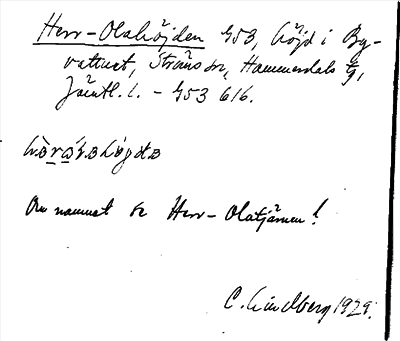 Herr-Olahöjden G53, höjd i By-
vattnet, Ströms sn, Hammerdals tg,
Jämtl. l. - G53 616.
Om namnet se Herr-Olatjärnen!
C. Lindberg 1929.